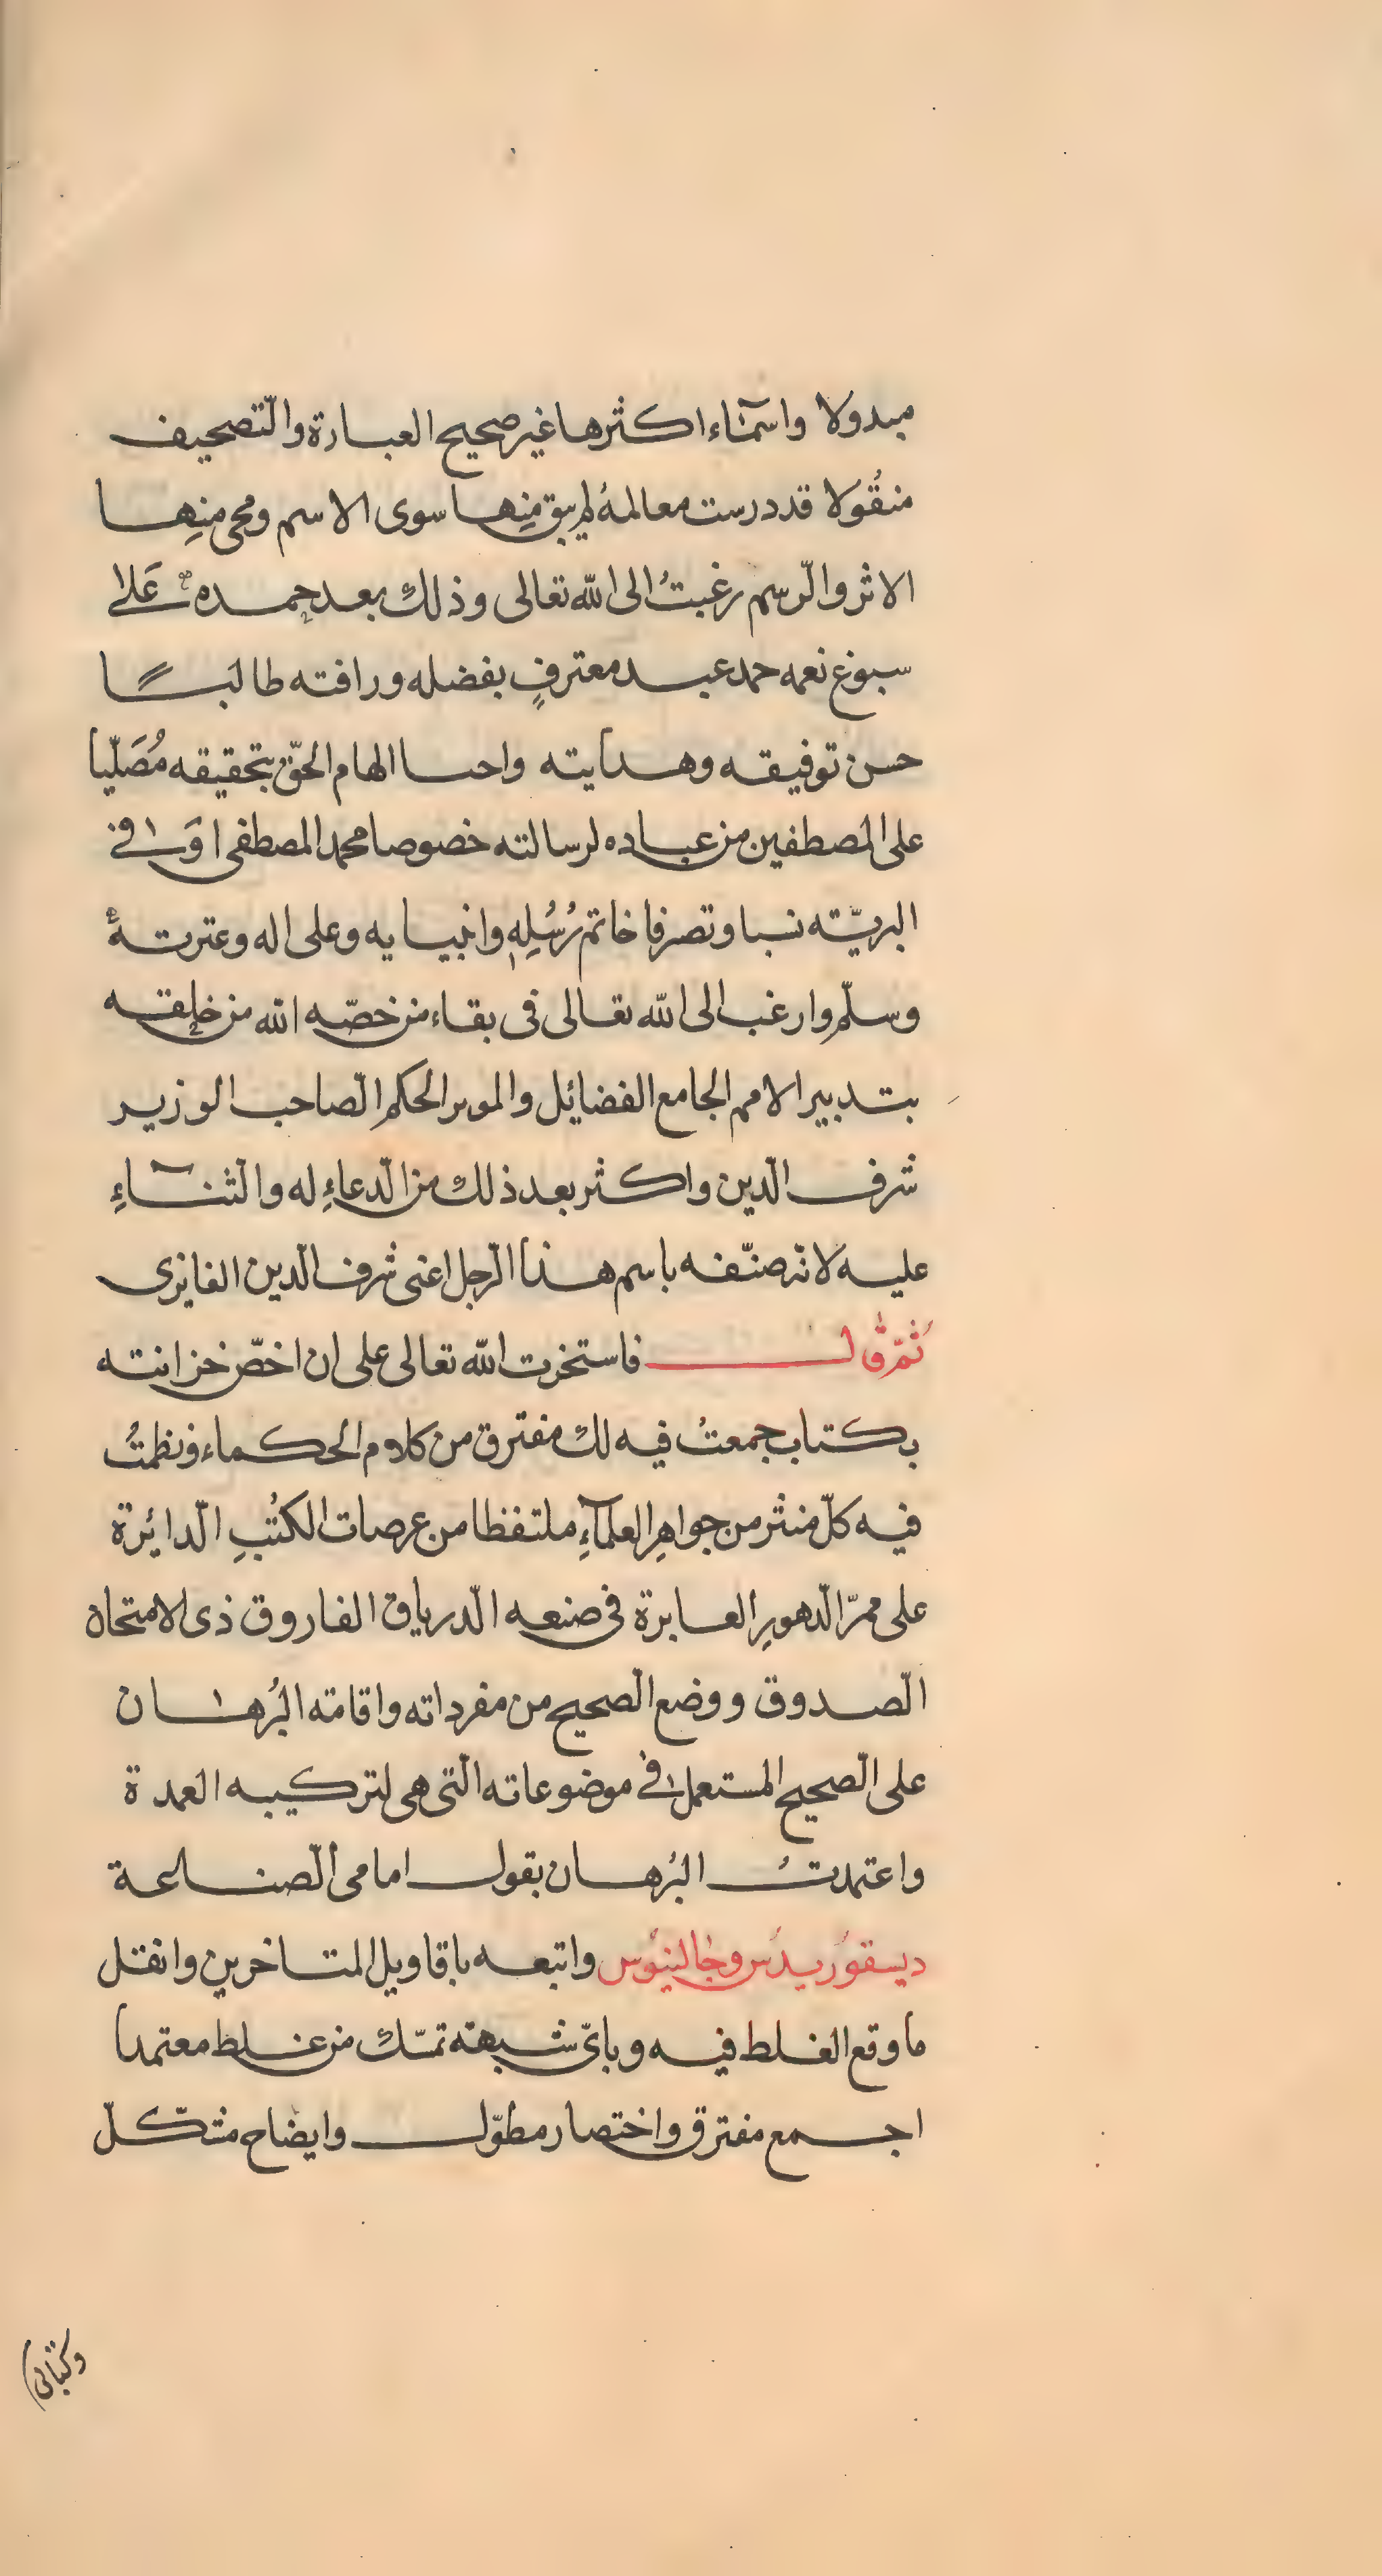 مبدولا واسمآء اكثرها غير صحيح العبارة والتّصحيف
منقُولا قد درست معالمهُ لم يبق مِنها سوى الاسم ومحى منِها
الاثر والّرسم رغبتُ الى الله تعالى وذلك بعد حمده عَلا
سبوغ نعمه حمد عبد معترفٍ بفضله ورافته طالبًا
حسن توفيقه وهدايته واحسا الهام الحقّ بتحقيقه مُصَلّيا
على المصطفين من عباده لرسالته خصوصا محمد المصطفى
البريّته نسبا وتصرفا خاتم رُسُلِهِ وانبيايه وعلى اله وعترته
وسلّم وارغب الى الله تعالى فى بقاء من خصّه الله من خلقه
بتدبير الامم الجامع الفضائِل والموىر الحكم الّصاحب الوزير
شرف الّدين واكثر بعد ذلك من الّدعاءِ له والثنآءِ
عليه لانّه صنّفه باسم هذا الّرجل اعنى شرف الّدين الفايزى
ثُمّ قٰال فاستخرت الله تعالى على ان اخصّ خزانته
بكتاب جمعتُ فيه لك مفترق من كلام الحكماء ونظمتُ
فيه كلّ منثر من جواهِر العلمآءِ ملتفظا من عرصات الكتُبِ الّدائِرة
على ممرّ الّدهورِ العابرة فى صنعه الّدرياق الفاروق ذى الامتحان
الّصدوق ووضع الّصحيح من مفرداته واقامته البُرهان
على الّصحيح المستعمل فى موضوعاته الّتى هى لتركيبه العمدة
واعتمدتُ البُرهان بقول امامى الّصناعة
ديسقوُريدُس وجٰالينوُس واتبعه باقاويل المتاخرين وانقل
ما وقع الغلط فيه وباىّ شبهته تمسّك من غلط معتمدا
اجمع مفترق واختصار مطوّل وايضاح مشكلّ
وكتابى